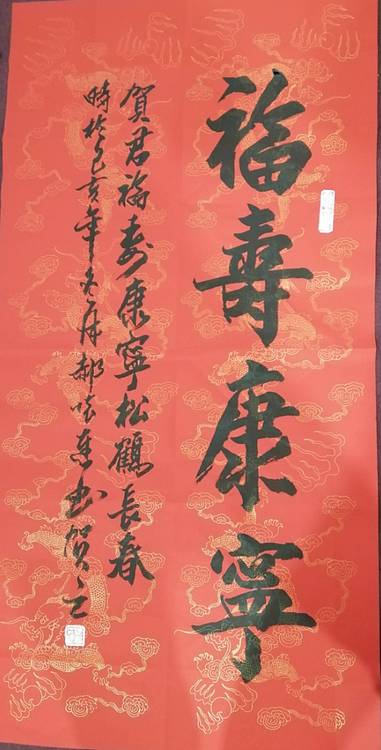 福壽康寧
賀君福寿康寧松鶴長春
時於己亥年冬月郝	書賀之